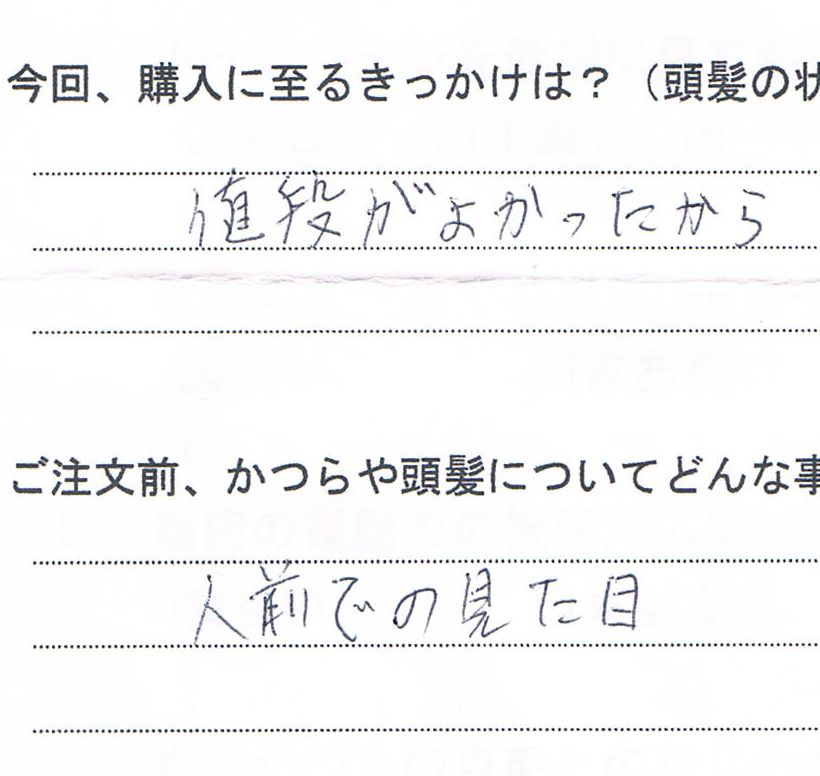 今回、購入に至るきっかけは？（頭髪の状
値段がよかったから
ご注文前、かつらや頭髪についてどんな事
人前での見た目